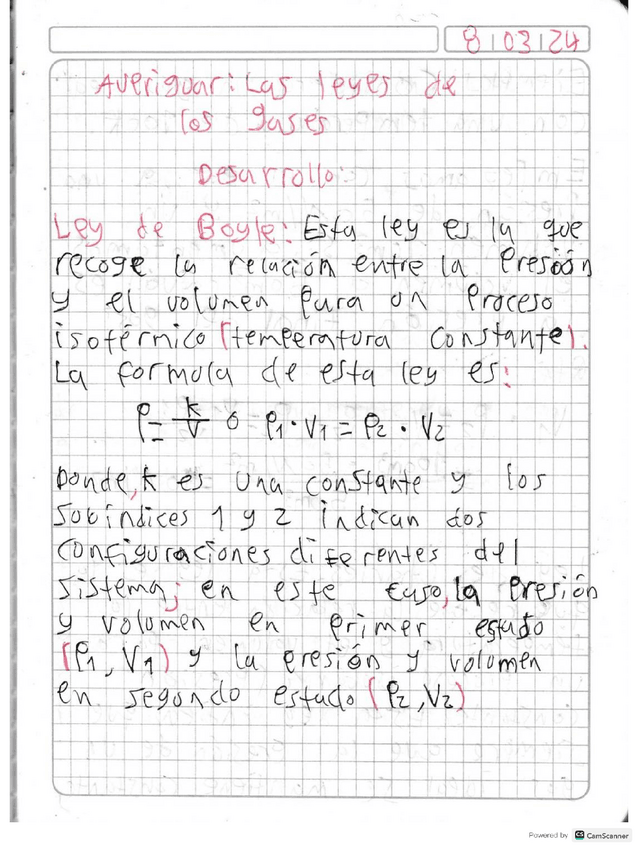 8|03|24
Averiguar: Las leyes de
los gases
Desarrollo:
Ley de Boyle: Esta ley es la que
recoge la relación entre la Presión
y el volumen para un Proceso
isotérmico (temperatura constante).
La formula de esta ley es:
P = k/V ó P1 · V1 = P2 · V2
Donde, k es una constante y los
subíndices 1 y 2 indican dos
configuraciones diferentes del
sistema; en este caso, la Presión
y volumen en primer estado
(P1, V1) y la presión y volumen
en segundo estado (P2, V2)
Powered by CS CamScanner